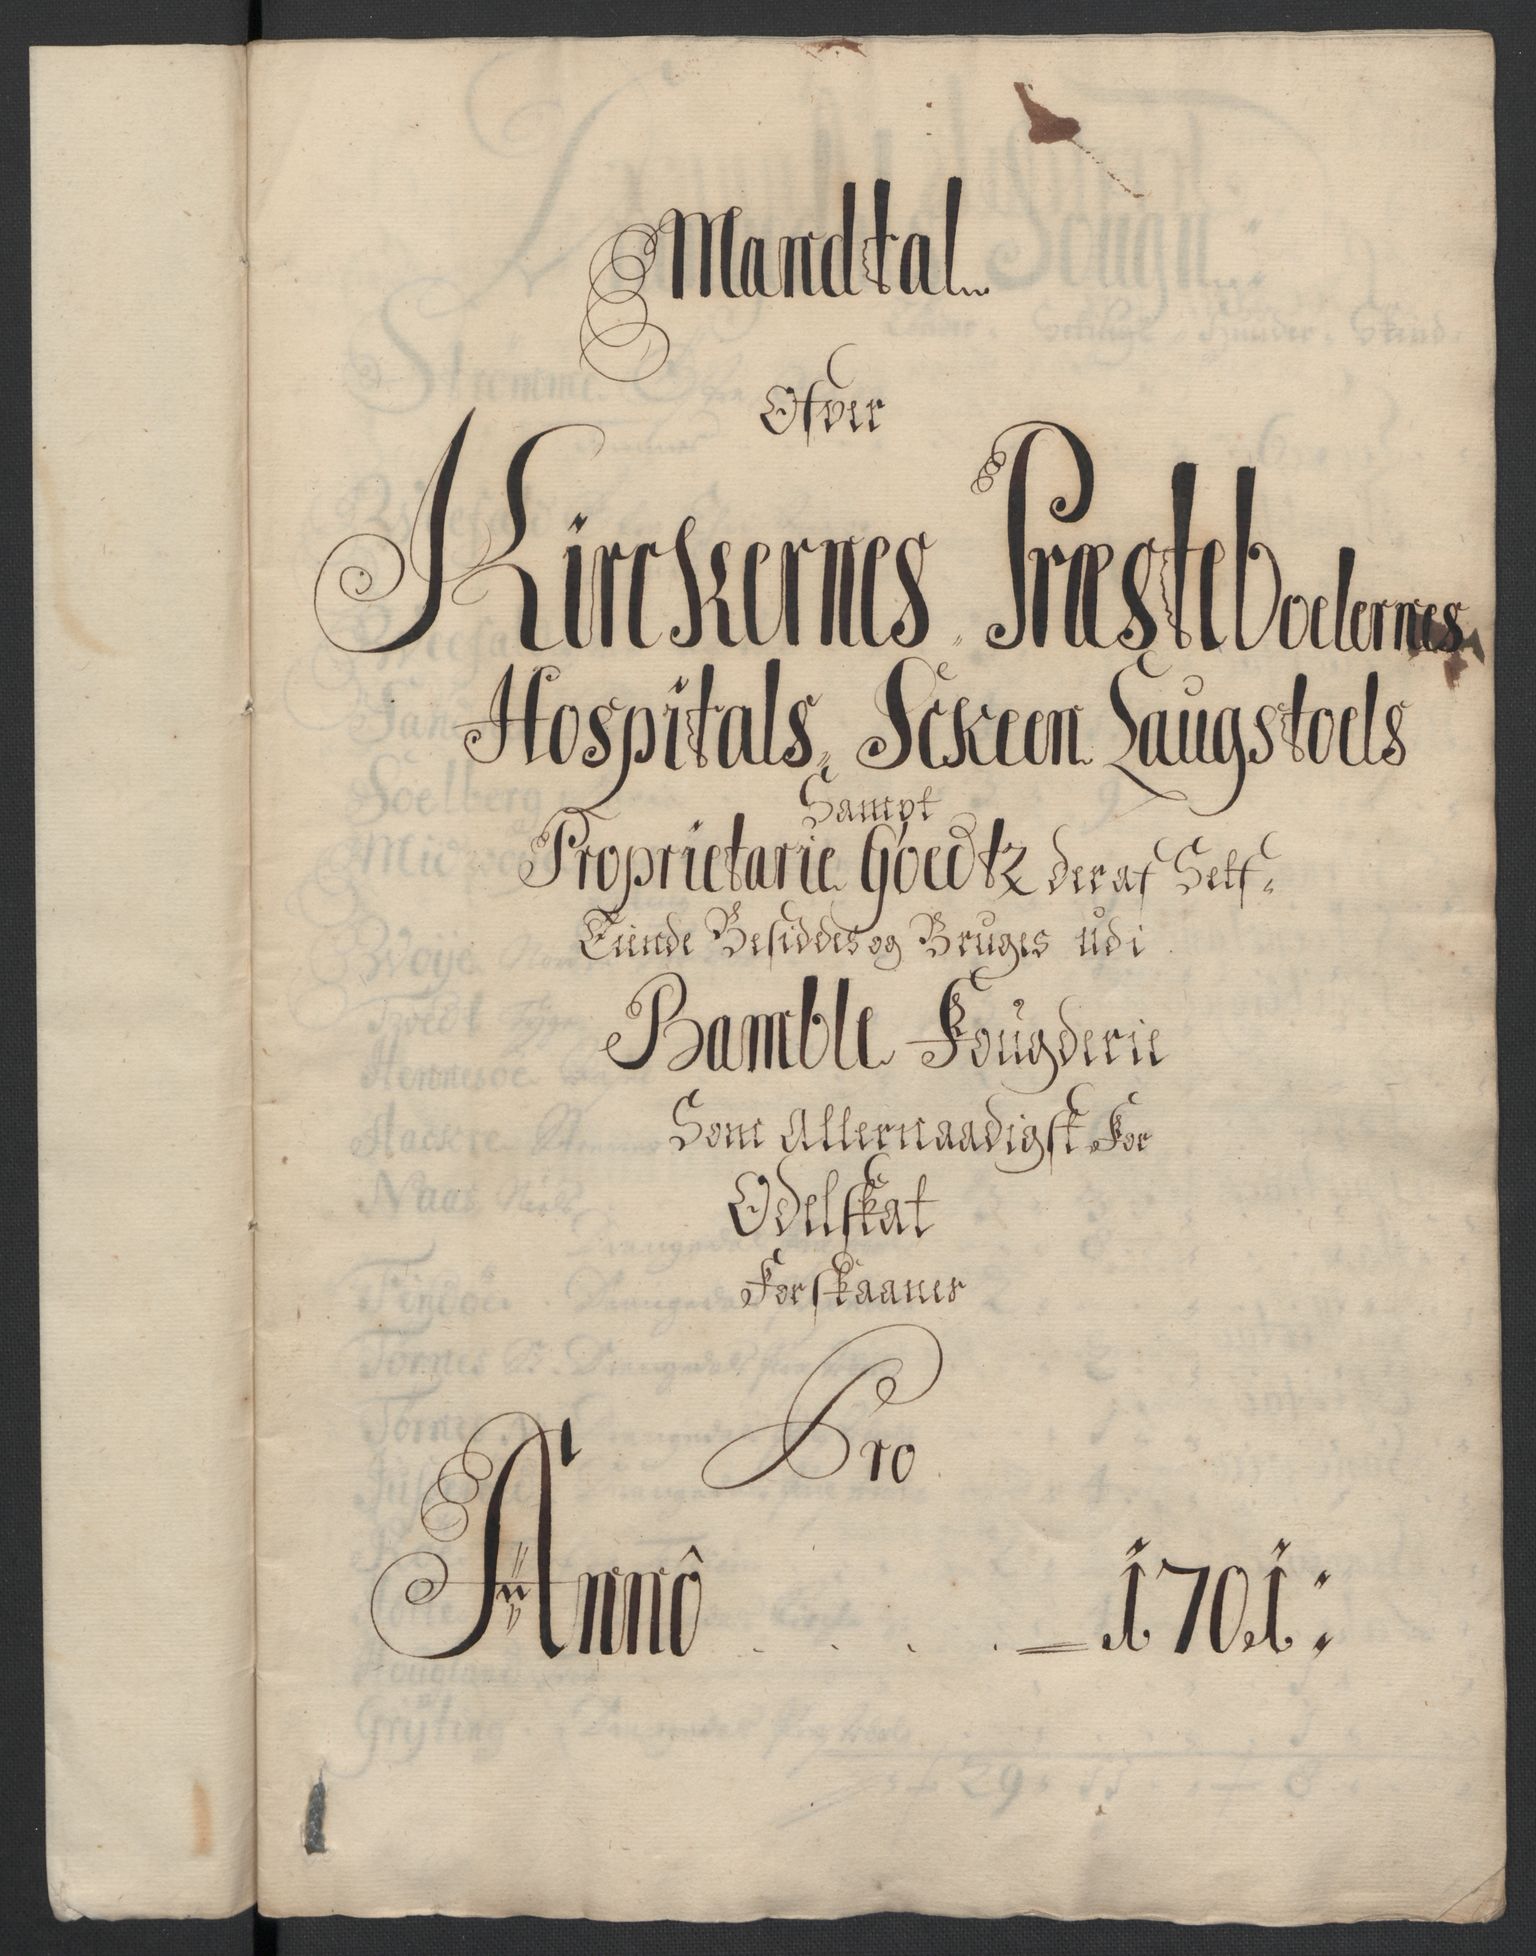 Mandtal
Ofver
Kirckernes, Præsteboelernes
Hospitals, Sckeen Laugstoels
Sampt
Proprietarie Goedtz deraf Self-
Eiende Besiddes og Bruges udi
Bamble Fougderie
Som Allernaadigst For
Odelskat
Forskaanes
Pro
Annô . . . . 1701: